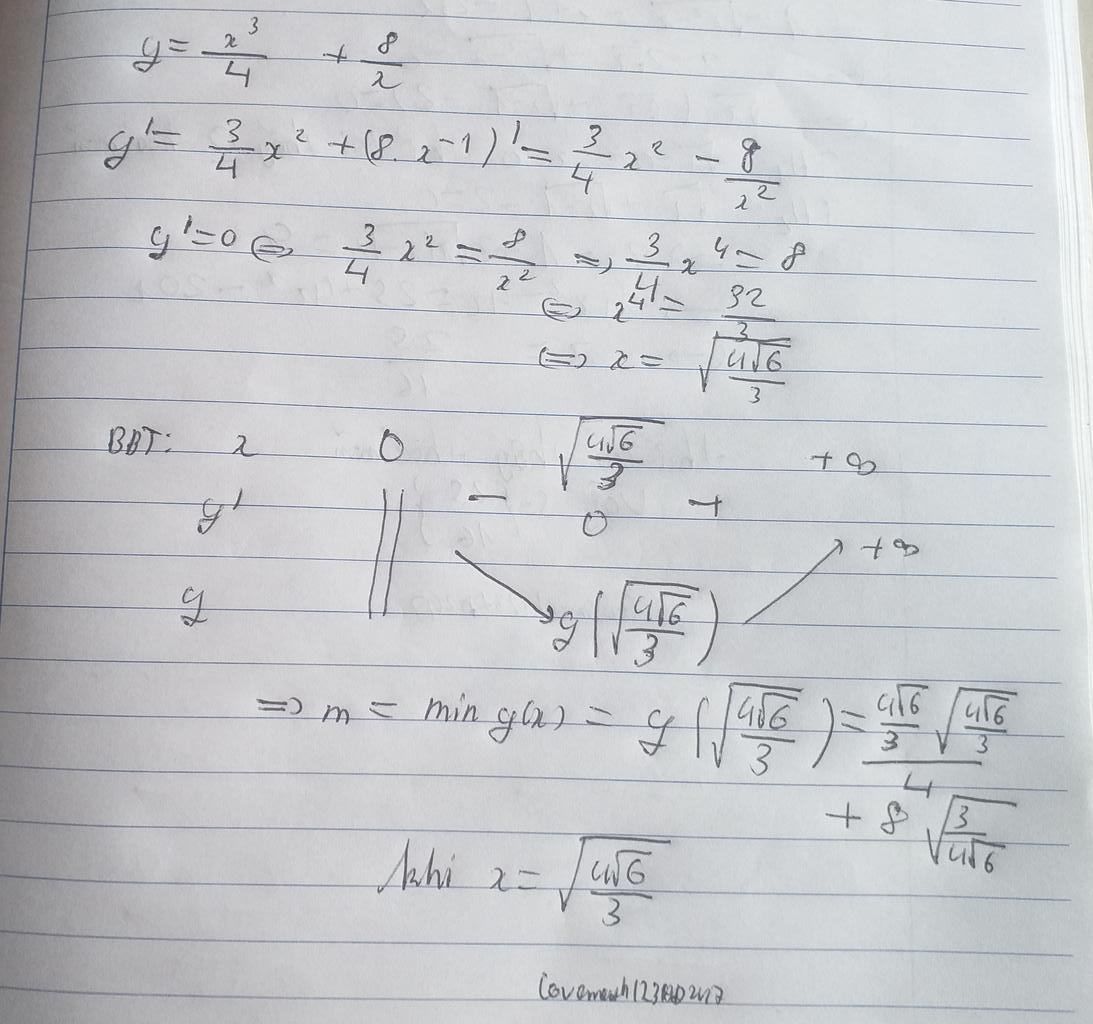 y = x³/4 + 8/x
y' = 3/4 x² + (8. x⁻¹)' = 3/4 x² - 8/x²
y' = 0 ⇔ 3/4 x² = 8/x² ⇒ 3/4 x⁴ = 8
⇔ x⁴ = 32/3
⇔ x = √(4√6/3)
BBT: x 0 √(4√6/3) +∞
y' || - 0 +
y || ↘ y(√(4√6/3)) ↗ +∞
⇒ m = min y(x) = y(√(4√6/3)) = (4√6/3 √(4√6/3))/4
+ 8 √(3/(4√6))
khi x = √(4√6/3)